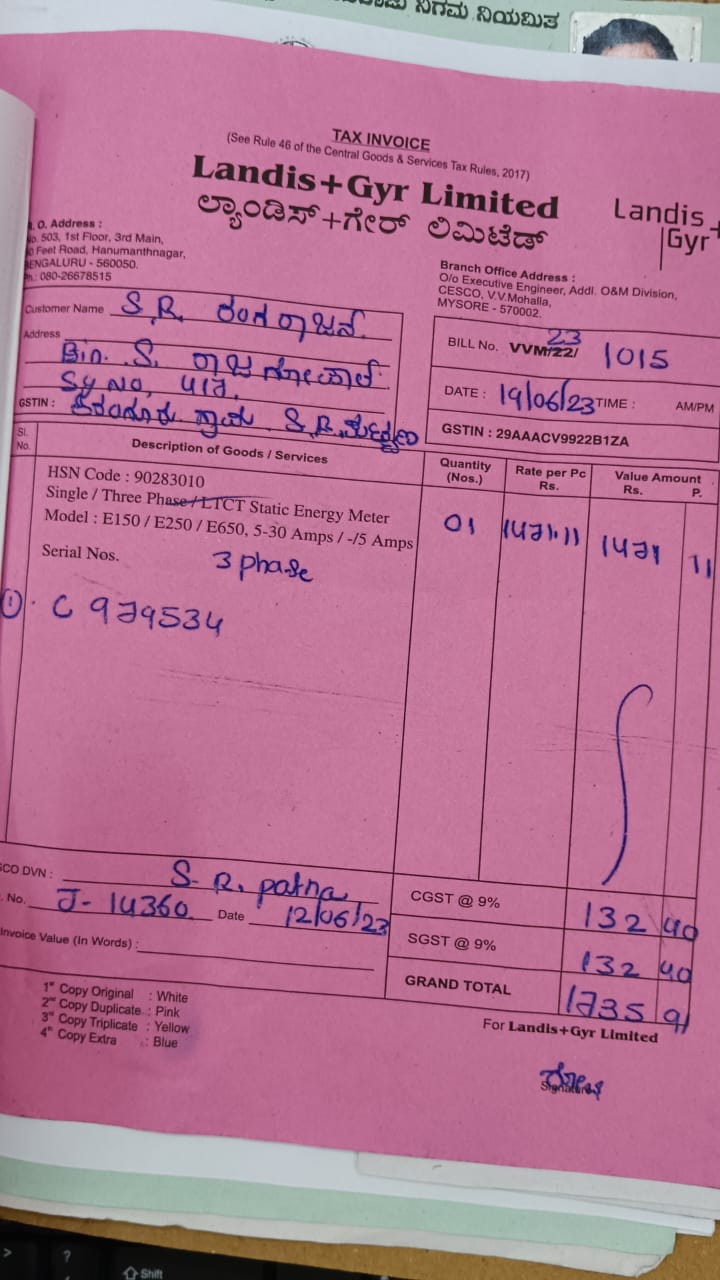 ನಿಗಮ ನಿಯಮಿತ
TAX INVOICE
(See Rule 46 of the Central Goods & Services Tax Rules, 2017)
Landis+Gyr Limited
ಲ್ಯಾಂಡಿಸ್+ಗೇರ್ ಲಿಮಿಟೆಡ್
Landis+
Gyr
. O. Address :
No. 503, 1st Floor, 3rd Main,
Feet Road, Hanumanthnagar,
BENGALURU - 560050.
Ph.: 080-26678515
Branch Office Address :
O/o Executive Engineer, Addl. O&M Division,
CESCO, V.V.Mohalla,
MYSORE - 570002.
Customer Name S.R. ರಂಗರಾಜನ್
Address Bin. S. ರಾಜಗೋಪಾಲ್
Sy No, 417,
GSTIN : ಗ್ರಾಮ S.R.
BILL No. VVM/22/ 23 1015
DATE : 19/06/23 TIME : AM/PM
GSTIN : 29AAACV9922B1ZA
Sl. No. Description of Goods / Services Quantity (Nos.) Rate per Pc Rs. Value Amount Rs. P.
HSN Code : 90283010
Single / Three Phase / LTCT Static Energy Meter
Model : E150 / E250 / E650, 5-30 Amps / -/5 Amps 01 1471.11 1471 11
Serial Nos. 3 phase
1. C 979534
SCO DVN : S. R. patna
. No. J- 14360 Date 12/06/23
Invoice Value (In Words) :
CGST @ 9% 132 40
SGST @ 9% 132 40
GRAND TOTAL 1735 91
1st Copy Original : White
2nd Copy Duplicate : Pink
3rd Copy Triplicate : Yellow
4th Copy Extra : Blue
For Landis+Gyr Limited
Signature
> ? Shift